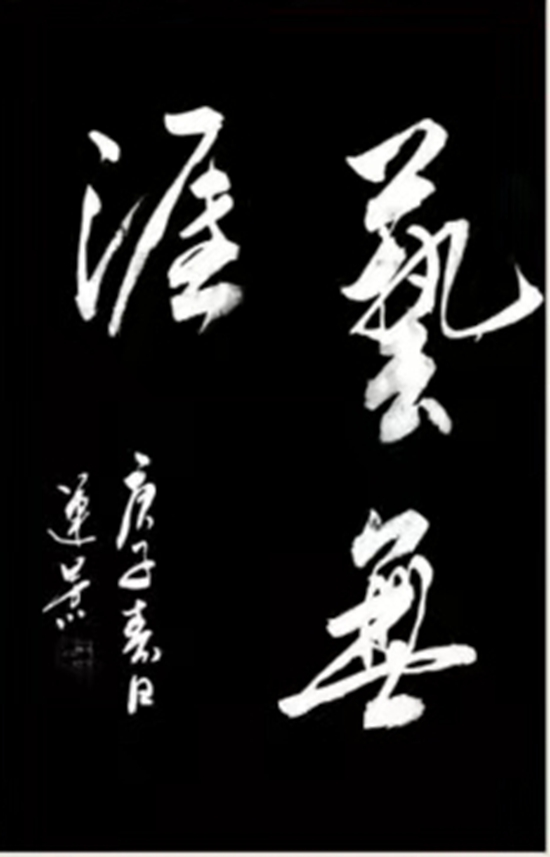 藝無
涯
庚子春日
蓮景